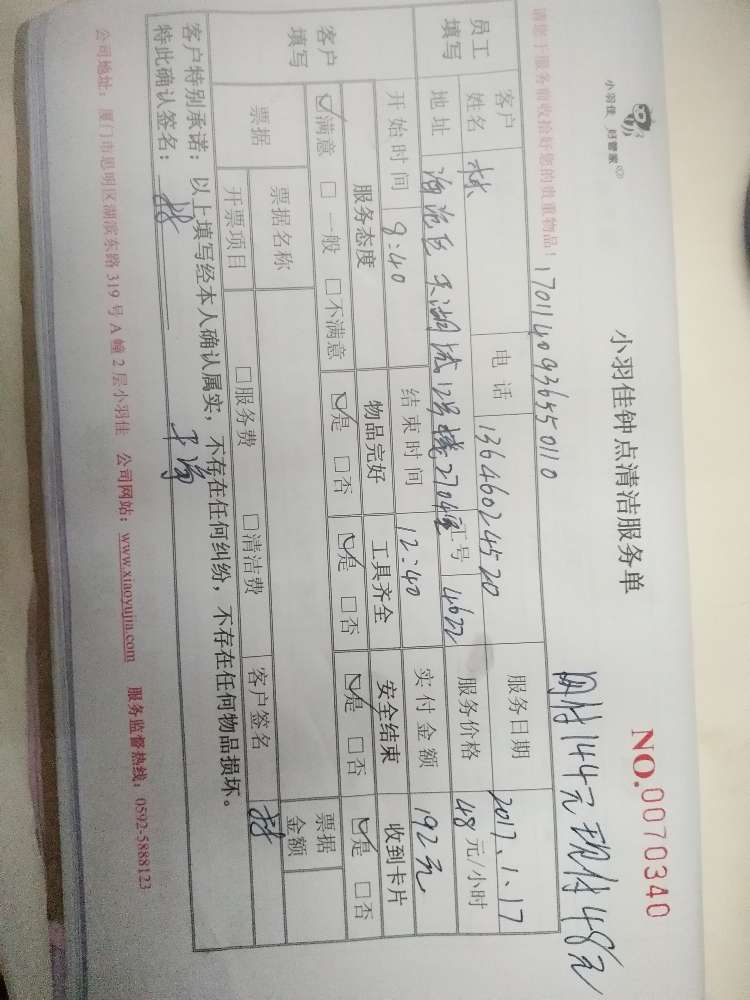 小羽佳 好管家
小羽佳钟点清洁服务单
NO.0070340
请您于服务前收拾好您的贵重物品!
1701140936550110
网付144元 现付48元
员工填写
客户姓名 林
电话 13646024520
服务日期 2017.1.17
地址 海沧区天湖城12号楼2704室
工号 4622
服务价格 48元/小时
开始时间 8:40
结束时间 12:40
实付金额 192元
客户填写
服务态度 物品完好 工具齐全 安全结束 收到卡片
☑满意 □一般 □不满意 ☑是 □否 ☑是 □否 ☑是 □否 ☑是 □否
票据
票据名称
票据金额
开票项目 □服务费 □清洁费 客户签名
客户特别承诺:以上填写经本人确认属实,不存在任何纠纷,不存在任何物品损坏。
特此确认签名:
公司地址:厦门市思明区湖滨东路319号A幢2层小羽佳 公司网站:www.xiaoyujia.com 服务监督热线:0592-5888123